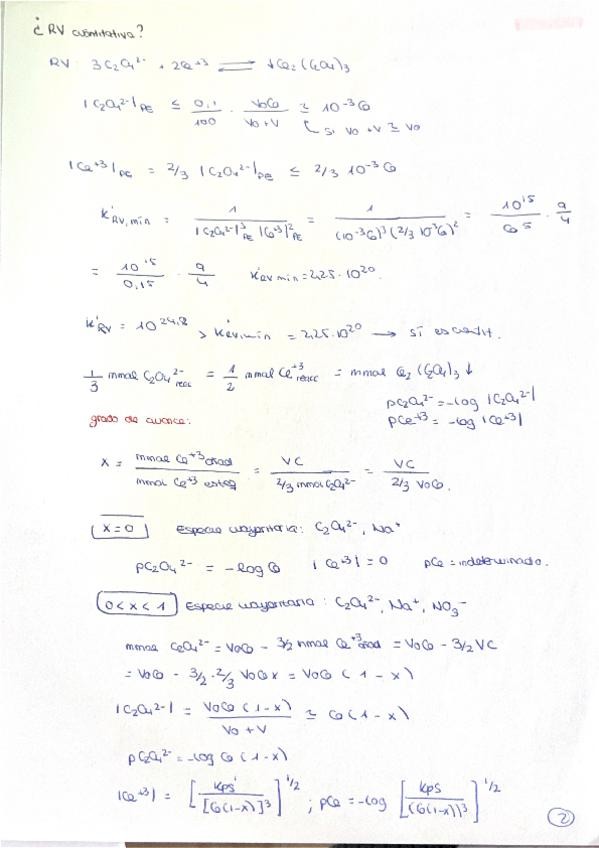 ¿RV cuantitativa?
RV: 3C₂O₄²⁻ + 2Ce⁺³ ⇌ ↓Ce₂(C₂O₄)₃
|C₂O₄²⁻|PE ≤ 0,1/100 · VoCo/(Vo+V) ≃ 10⁻³Co
si Vo+V ≃ Vo
|Ce⁺³|PE = 2/3 |C₂O₄²⁻|PE ≤ 2/3 10⁻³Co
K'RV,min = 1/(|C₂O₄²⁻|³PE |Ce⁺³|²PE) = 1/((10⁻³Co)³(2/3 10⁻³Co)²) = 10¹⁵/Co⁵ · 9/4
= 10¹⁵/0,1⁵ · 9/4 K'RV min = 2,25·10²⁰.
K'RV = 10²⁴'⁸ > K'RV,min = 2,25·10²⁰ → sí es cuantit.
1/3 mmol C₂O₄²⁻reacc = 1/2 mmol Ce⁺³reacc = mmol Ce₂(C₂O₄)₃↓
pC₂O₄²⁻ = -log |C₂O₄²⁻|
pCe⁺³ = -log |Ce⁺³|
grado de avance:
X = mmol Ce⁺³ añad/mmol Ce⁺³ esteq = VC/(2/3 mmol C₂O₄²⁻) = VC/(2/3 VoCo).
X=0 Especie mayoritaria: C₂O₄²⁻, Na⁺
pC₂O₄²⁻ = -log Co |Ce⁺³| = 0 pCe = indeterminado.
0<X<1 Especie mayoritaria: C₂O₄²⁻, Na⁺, NO₃⁻
mmol C₂O₄²⁻ = VoCo - 3/2 mmol Ce⁺³añad = VoCo - 3/2 VC
= VoCo - 3/2 · 2/3 VoCo X = VoCo (1-X)
|C₂O₄²⁻| = VoCo(1-X)/(Vo+V) ≃ Co(1-X)
pC₂O₄²⁻ = -log Co (1-X)
|Ce⁺³| = [Kps'/[Co(1-X)]³]^1/2 ; pCe = -log [Kps/(Co(1-X))³]^1/2
2